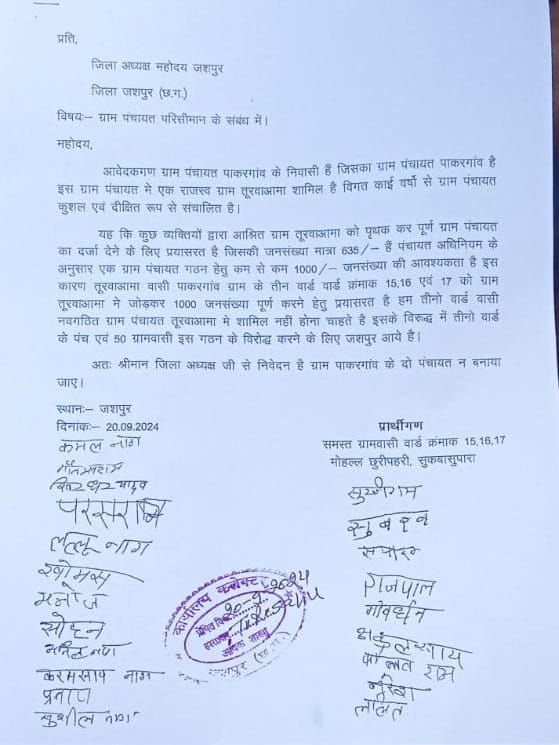 प्रति,
जिला अध्यक्ष महोदय जशपुर
जिला जशपुर (छ.ग.)
विषयः– ग्राम पंचायत परिसीमान के संबंध में।
महोदय,
आवेदकगण ग्राम पंचायत पाकरगांव के निवासी हैं जिसका ग्राम पंचायत पाकरगांव है
इस ग्राम पंचायत मे एक राजस्व ग्राम तूरवाआमा शामिल है विगत काई वर्षो से ग्राम पंचायत
कुशल एवं दीक्षित रूप से संचालित है।
यह कि कुछ व्यक्तियों द्वारा आश्रित ग्राम तूरवाआमा को पृथक कर पूर्ण ग्राम पंचायत
का दर्जा देने के लिए प्रयासरत है जिसकी जनसंख्या मात्रा 635/– हैं पंचायत अधिनियम के
अनुसार एक ग्राम पंचायत गठन हेतु कम से कम 1000/– जनसंख्या की आवश्यकता है इस
कारण तूरवाआमा वासी पाकरगांव ग्राम के तीन वार्ड वार्ड क्रमांक 15,16 एवं 17 को ग्राम
तूरवाआमा मे जोड़कर 1000 जनसंख्या पूर्ण करने हेतु प्रयासरत है हम तीनो वार्ड वासी
नवगठित ग्राम पंचायत तूरवाआमा मे शामिल नहीं होना चाहते है इसके विरूद्ध में तीनो वार्ड
के पंच एवं 50 ग्रामवासी इस गठन के विरोद्ध करने के लिए जशपुर आये है।
अतः श्रीमान जिला अध्यक्ष जी से निवेदन है ग्राम पाकरगांव के दो पंचायत न बनाया
जाए।
स्थानः– जशपुर
दिनांकः– 20.09.2024
प्रार्थीगण
समस्त ग्रामवासी वार्ड क्रमांक 15,16,17
मोहल्ल छुरीपहरी, सुकबासुपारा
कमल नाग
यादव
परसराम
लल्लू नाग
मनोज
सोहन
करमसाय नाग
प्रताप
सुशील नाग
गजपाल
गोवर्धन
राम
ललित
कार्यालय कलेक्टर
जशपुर (छ.ग.)